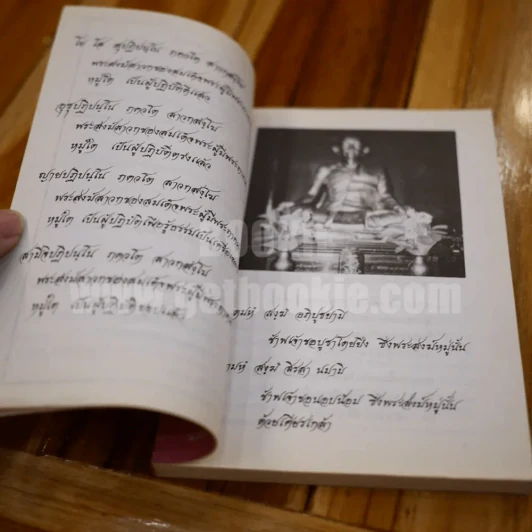 โย โส สุปฏิปนฺโน ภควโต สาวกสงฺโฆ
พระสงฆ์สาวกของสมเด็จพระผู้มีพระภาคเจ้า
หมู่ใด เป็นผู้ปฏิบัติดีแล้ว
อุชุปฏิปนฺโน ภควโต สาวกสงฺโฆ
พระสงฆ์สาวกของสมเด็จพระผู้มีพระภาค
หมู่ใด เป็นผู้ปฏิบัติตรงแล้ว
ญายปฏิปนฺโน ภควโต สาวกสงฺโฆ
พระสงฆ์สาวกของสมเด็จพระผู้มีพระภาค
หมู่ใด เป็นผู้ปฏิบัติเพื่อรู้ธรรมเป็น
สามีจิปฏิปนฺโน ภควโต สาวกสงฺโฆ
พระสงฆ์สาวกของสมเด็จพระผู้มีพระภาค
หมู่ใด เป็นผู้ปฏิบัติ
ตมหํ สงฺฆํ อภิปูชยามิ
ข้าพเจ้าขอบูชาโดยยิ่ง ซึ่งพระสงฆ์หมู่นั้น
มหํ สงฺฆํ สิรสา นมามิ
ข้าพเจ้าขอนอบน้อม ซึ่งพระสงฆ์หมู่นั้น
ด้วยเศียรเกล้า
www.getbookie.com